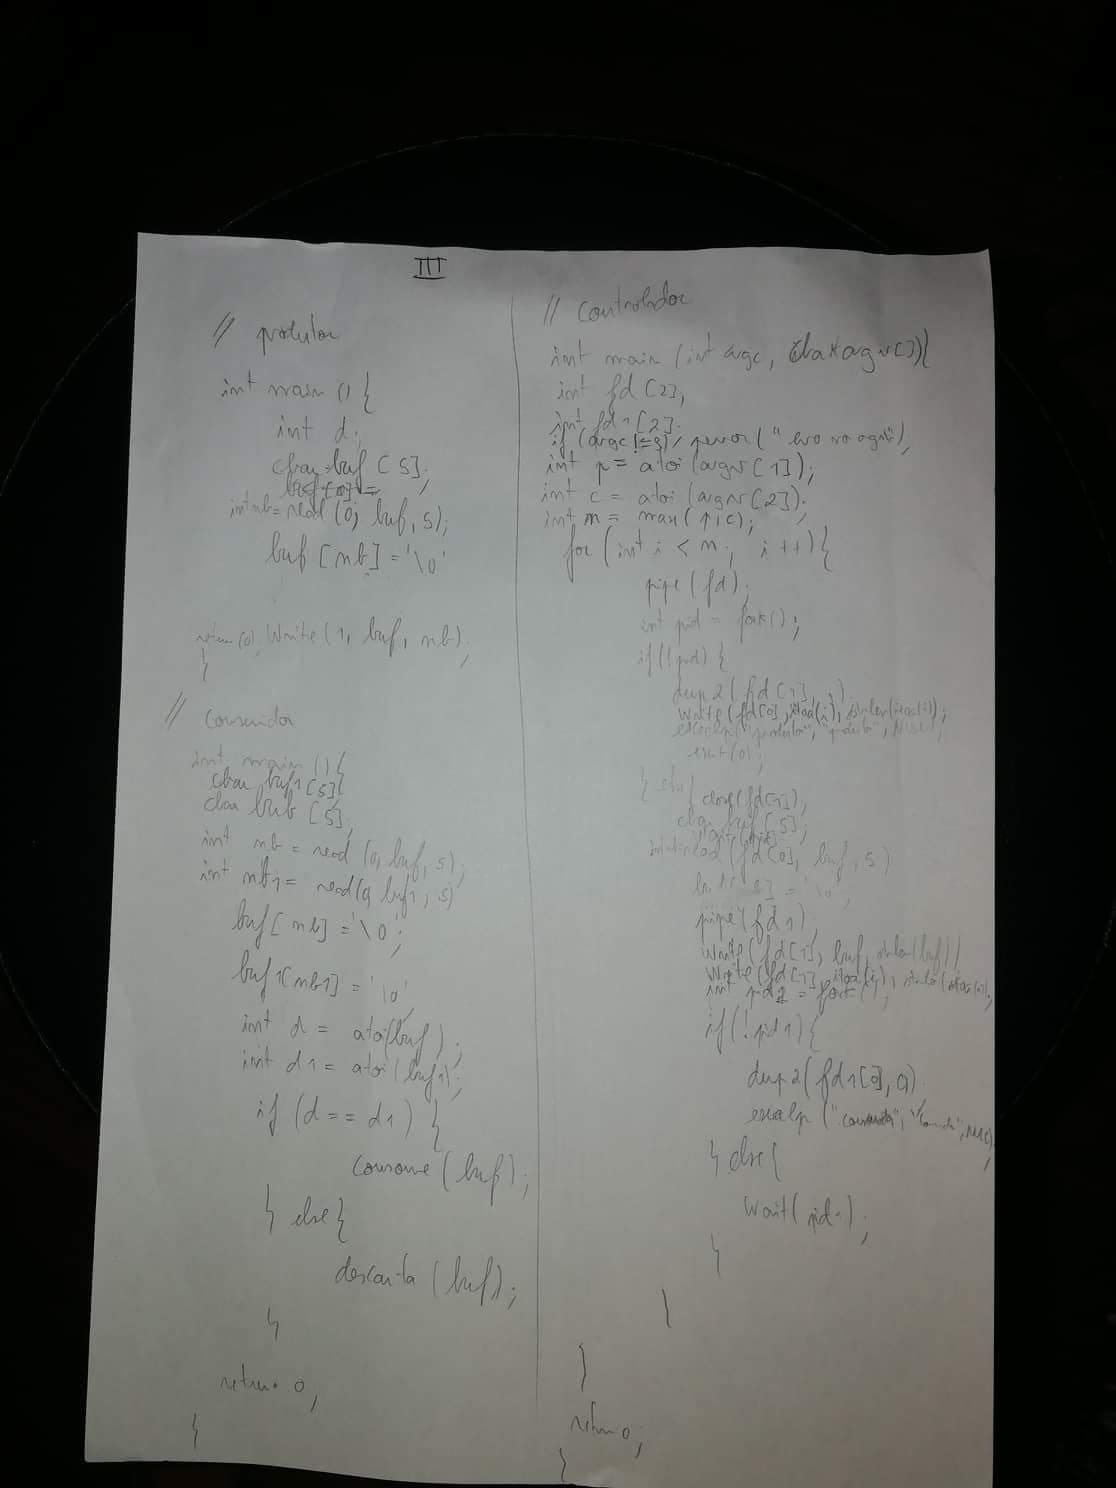 III
// produtor
int main () {
int d;
char buf [5];
int nb = read (0, buf, 5);
buf [nb] = '\0'
return (0), Write (1, buf, nb);
}
// Consumidor
int main () {
char buf1 [5];
char bub [5];
int nb = read (0, buf, 5);
int nb1 = read (0, buf1, 5)
buf [nb] = '\0';
buf1[nb1] = '\0';
int d = atoi(buf);
int d1 = atoi (buf1);
if (d == d1) {
consome (buf);
} else {
descarta (buf);
}
return 0;
}
// Controlador
int main (int argc, char* argv[]){
int fd [2];
int fd1 [2];
if (argc != 3) perror (" erro no
int p = atoi (argv [1]);
int c = atoi (argv [2]);
int m = max (p, c);
for (int i < m; i ++) {
pipe (fd);
int pid = fork ();
if (! pid) {
dup2 (fd [1], 1)
Write (fd[0], itoa(i), strlen(itoa(i));
execlp ("produtor", "produtor", NULL);
exit (0);
} else { close (fd[1]);
char buf [5];
read (fd [0], buf, 5)
= '\0';
pipe (fd 1);
Write (fd[1], buf, strlen(buf))
Write (fd[1], itoa(i), strlen(itoa(i));
int pid1 = fork ();
if (! pid 1) {
dup2 (fd1[0], 0)
execlp ("consumidor", NULL);
} else {
Wait (pid1);
}
}
}
return 0;
}